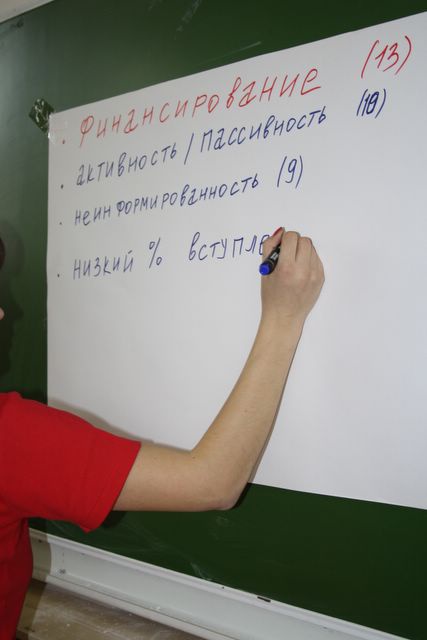 · Финансирование (13)
· активность / пассивность (18)
· неинформированность (9)
· низкий % вступле